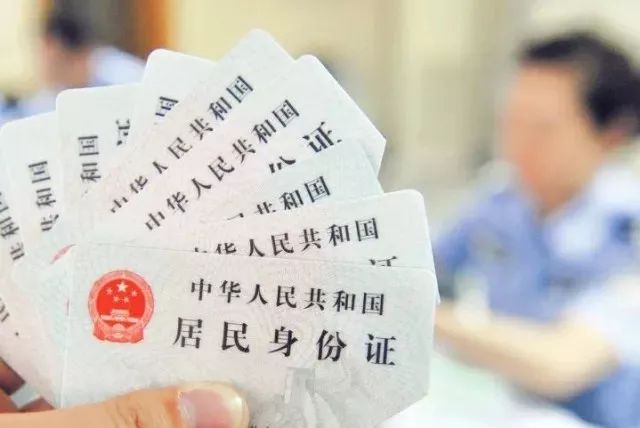 中华人民共和国
中华人民共和国
证
和国
中华人民共和国
中华人民共和国
居民身份证